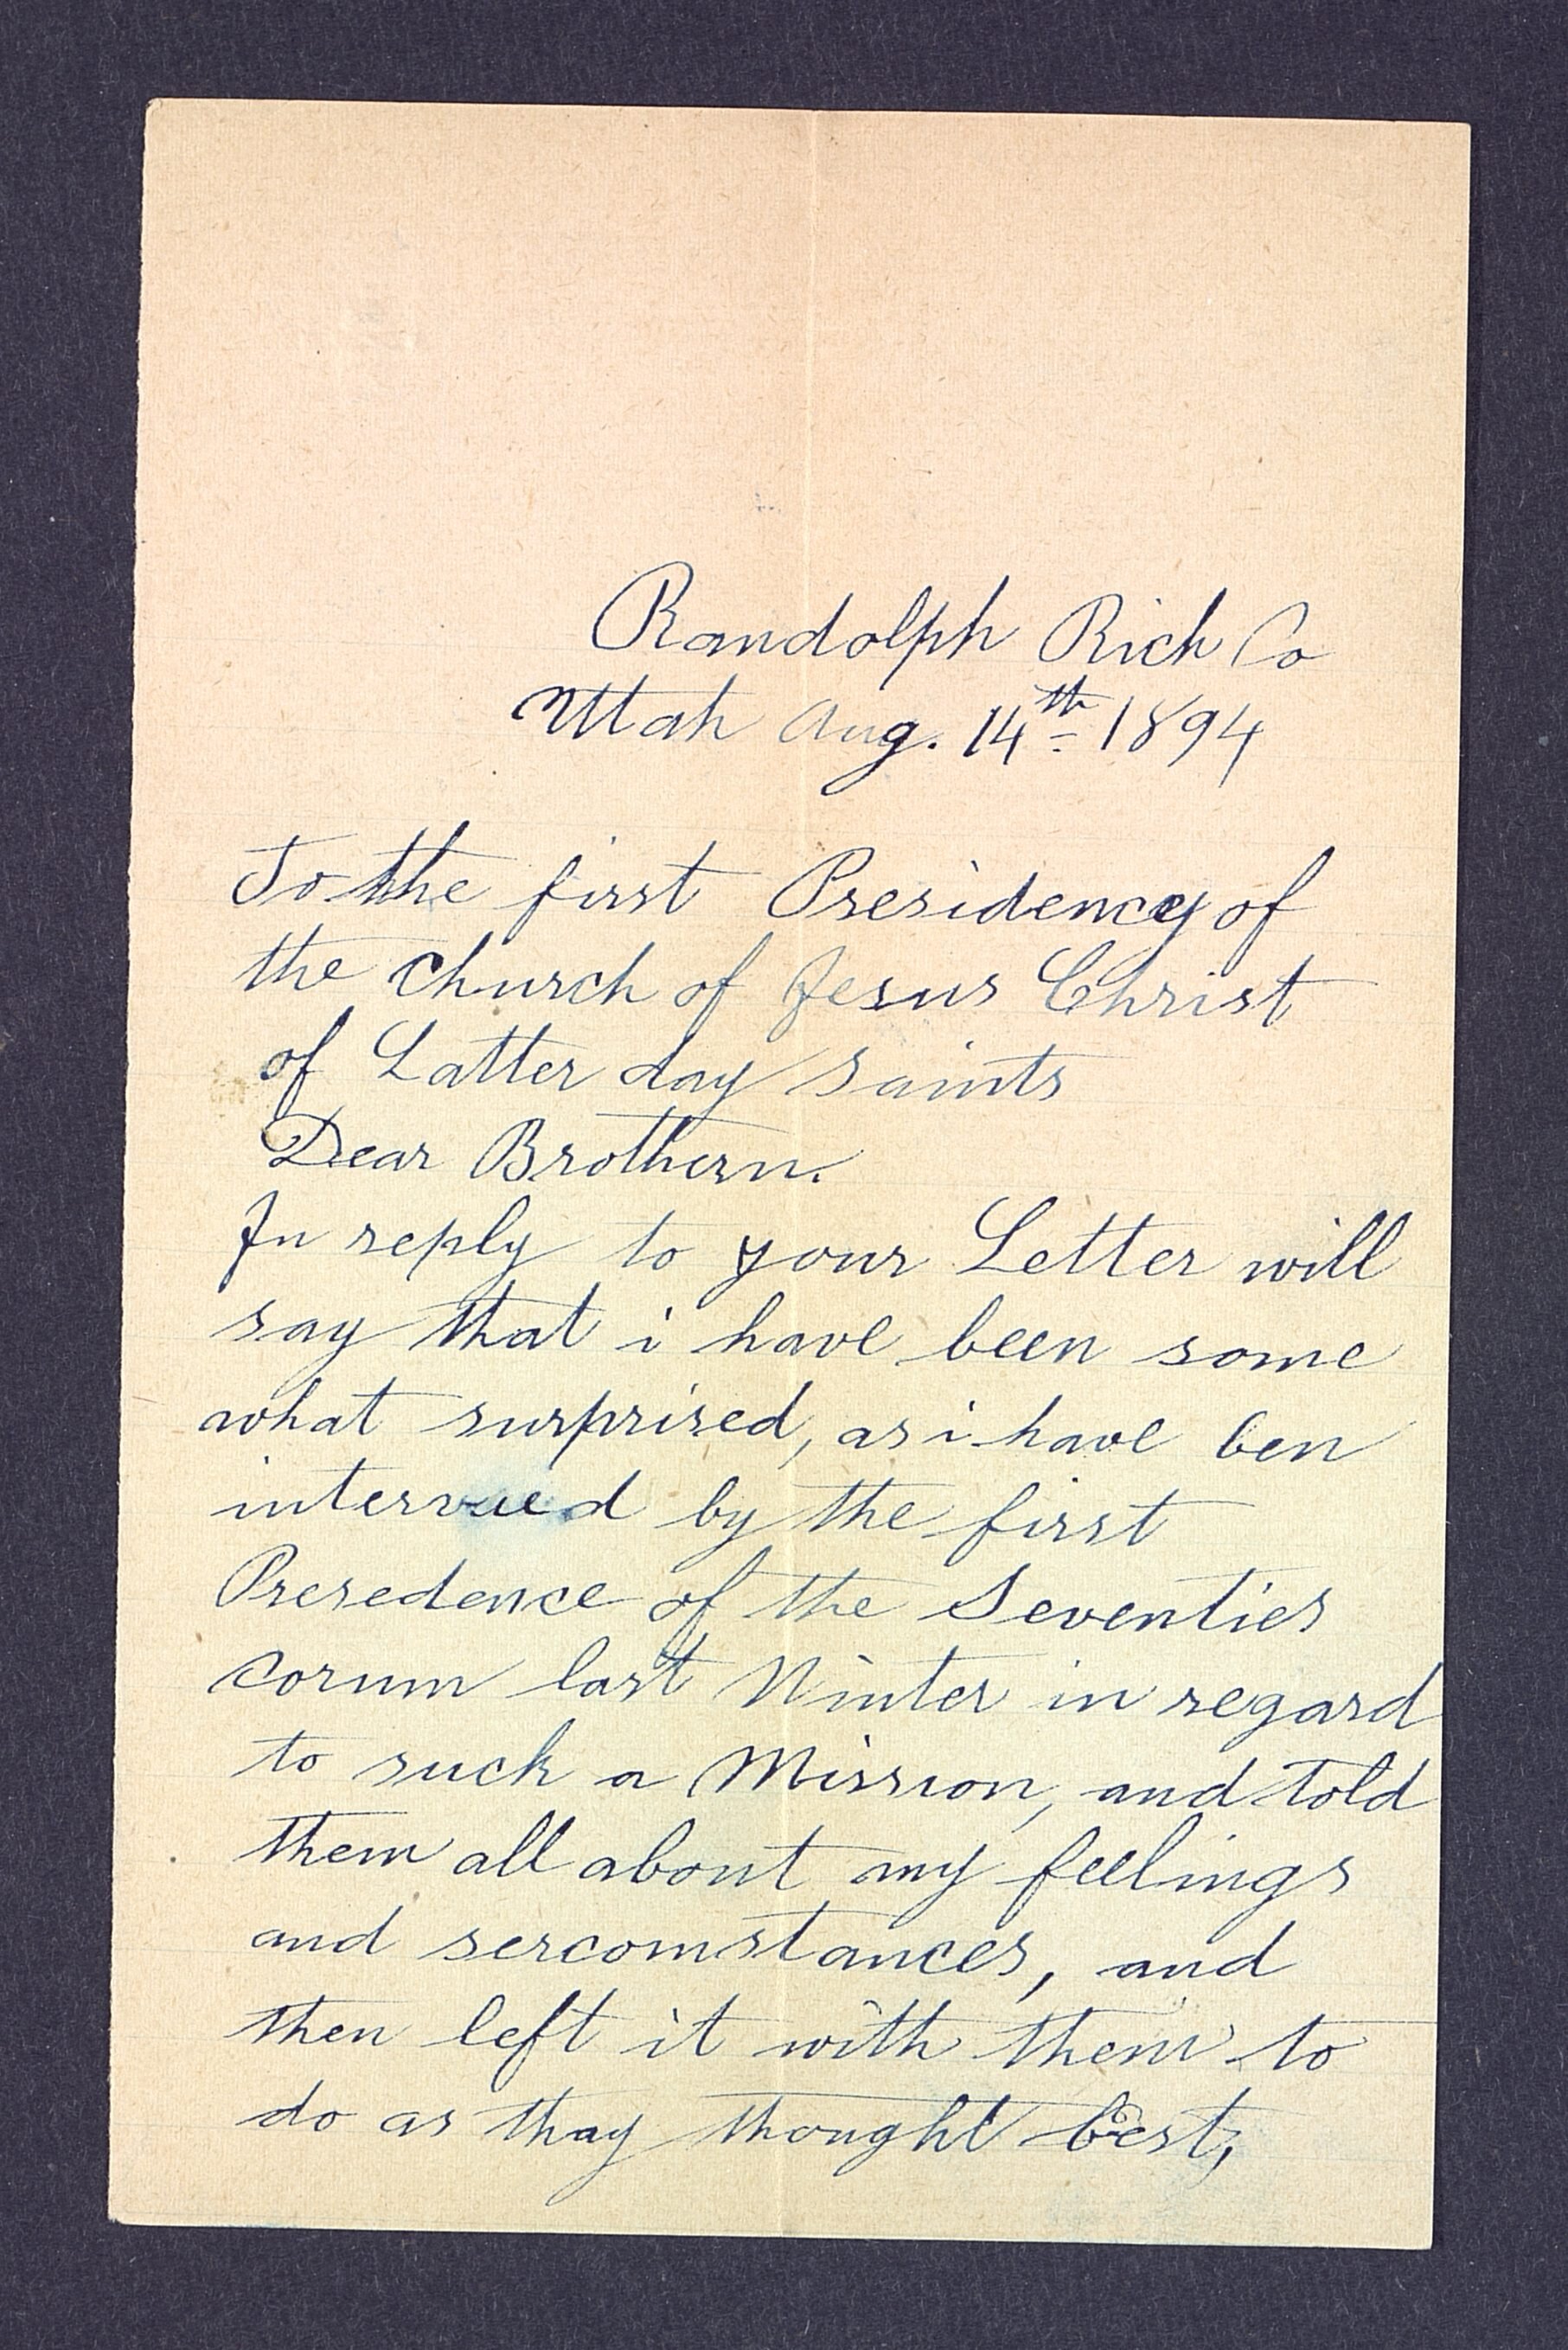 Randolph Rich Co
Uttah Aug. 14th 1894
To the first Presidency of
the Church of Jesus Christ
of Latter day Saints
Dear Brothern.
In reply to your Letter will
say that i have been some
what surprised, as i have ben
intervued by the first
Presedence of the Seventies
corum last Winter in regard
to such a Mission, and told
them all about my feelings
and sercomstances, and
then left it with them to
do as thay thought best,